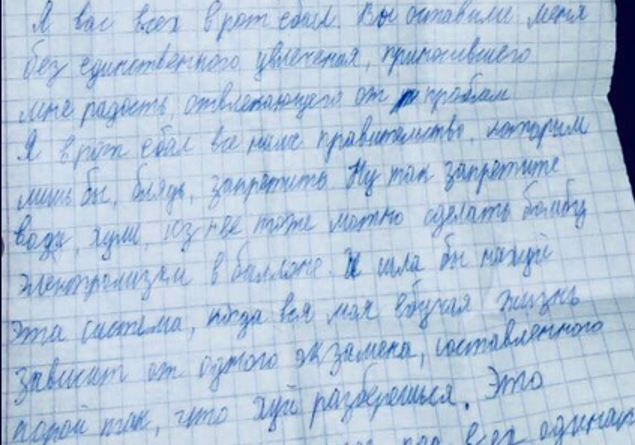 Я вас всех в рот ебал. Вы оставили меня
без единственного увлечения, приносившего
мне радость, отвлекающего от проблем
Я в рот ебал все наше правительство, которым
лишь бы, блядь, запретить. Ну так запретите
воду, хули, из нее тоже можно сделать бомбу
электролизом в баллоне. И шла бы нахуй
эта система, когда вся моя ебучая жизнь
зависит от одного экзамена, составленного
порой так, что хуй разберешься. Это
всех